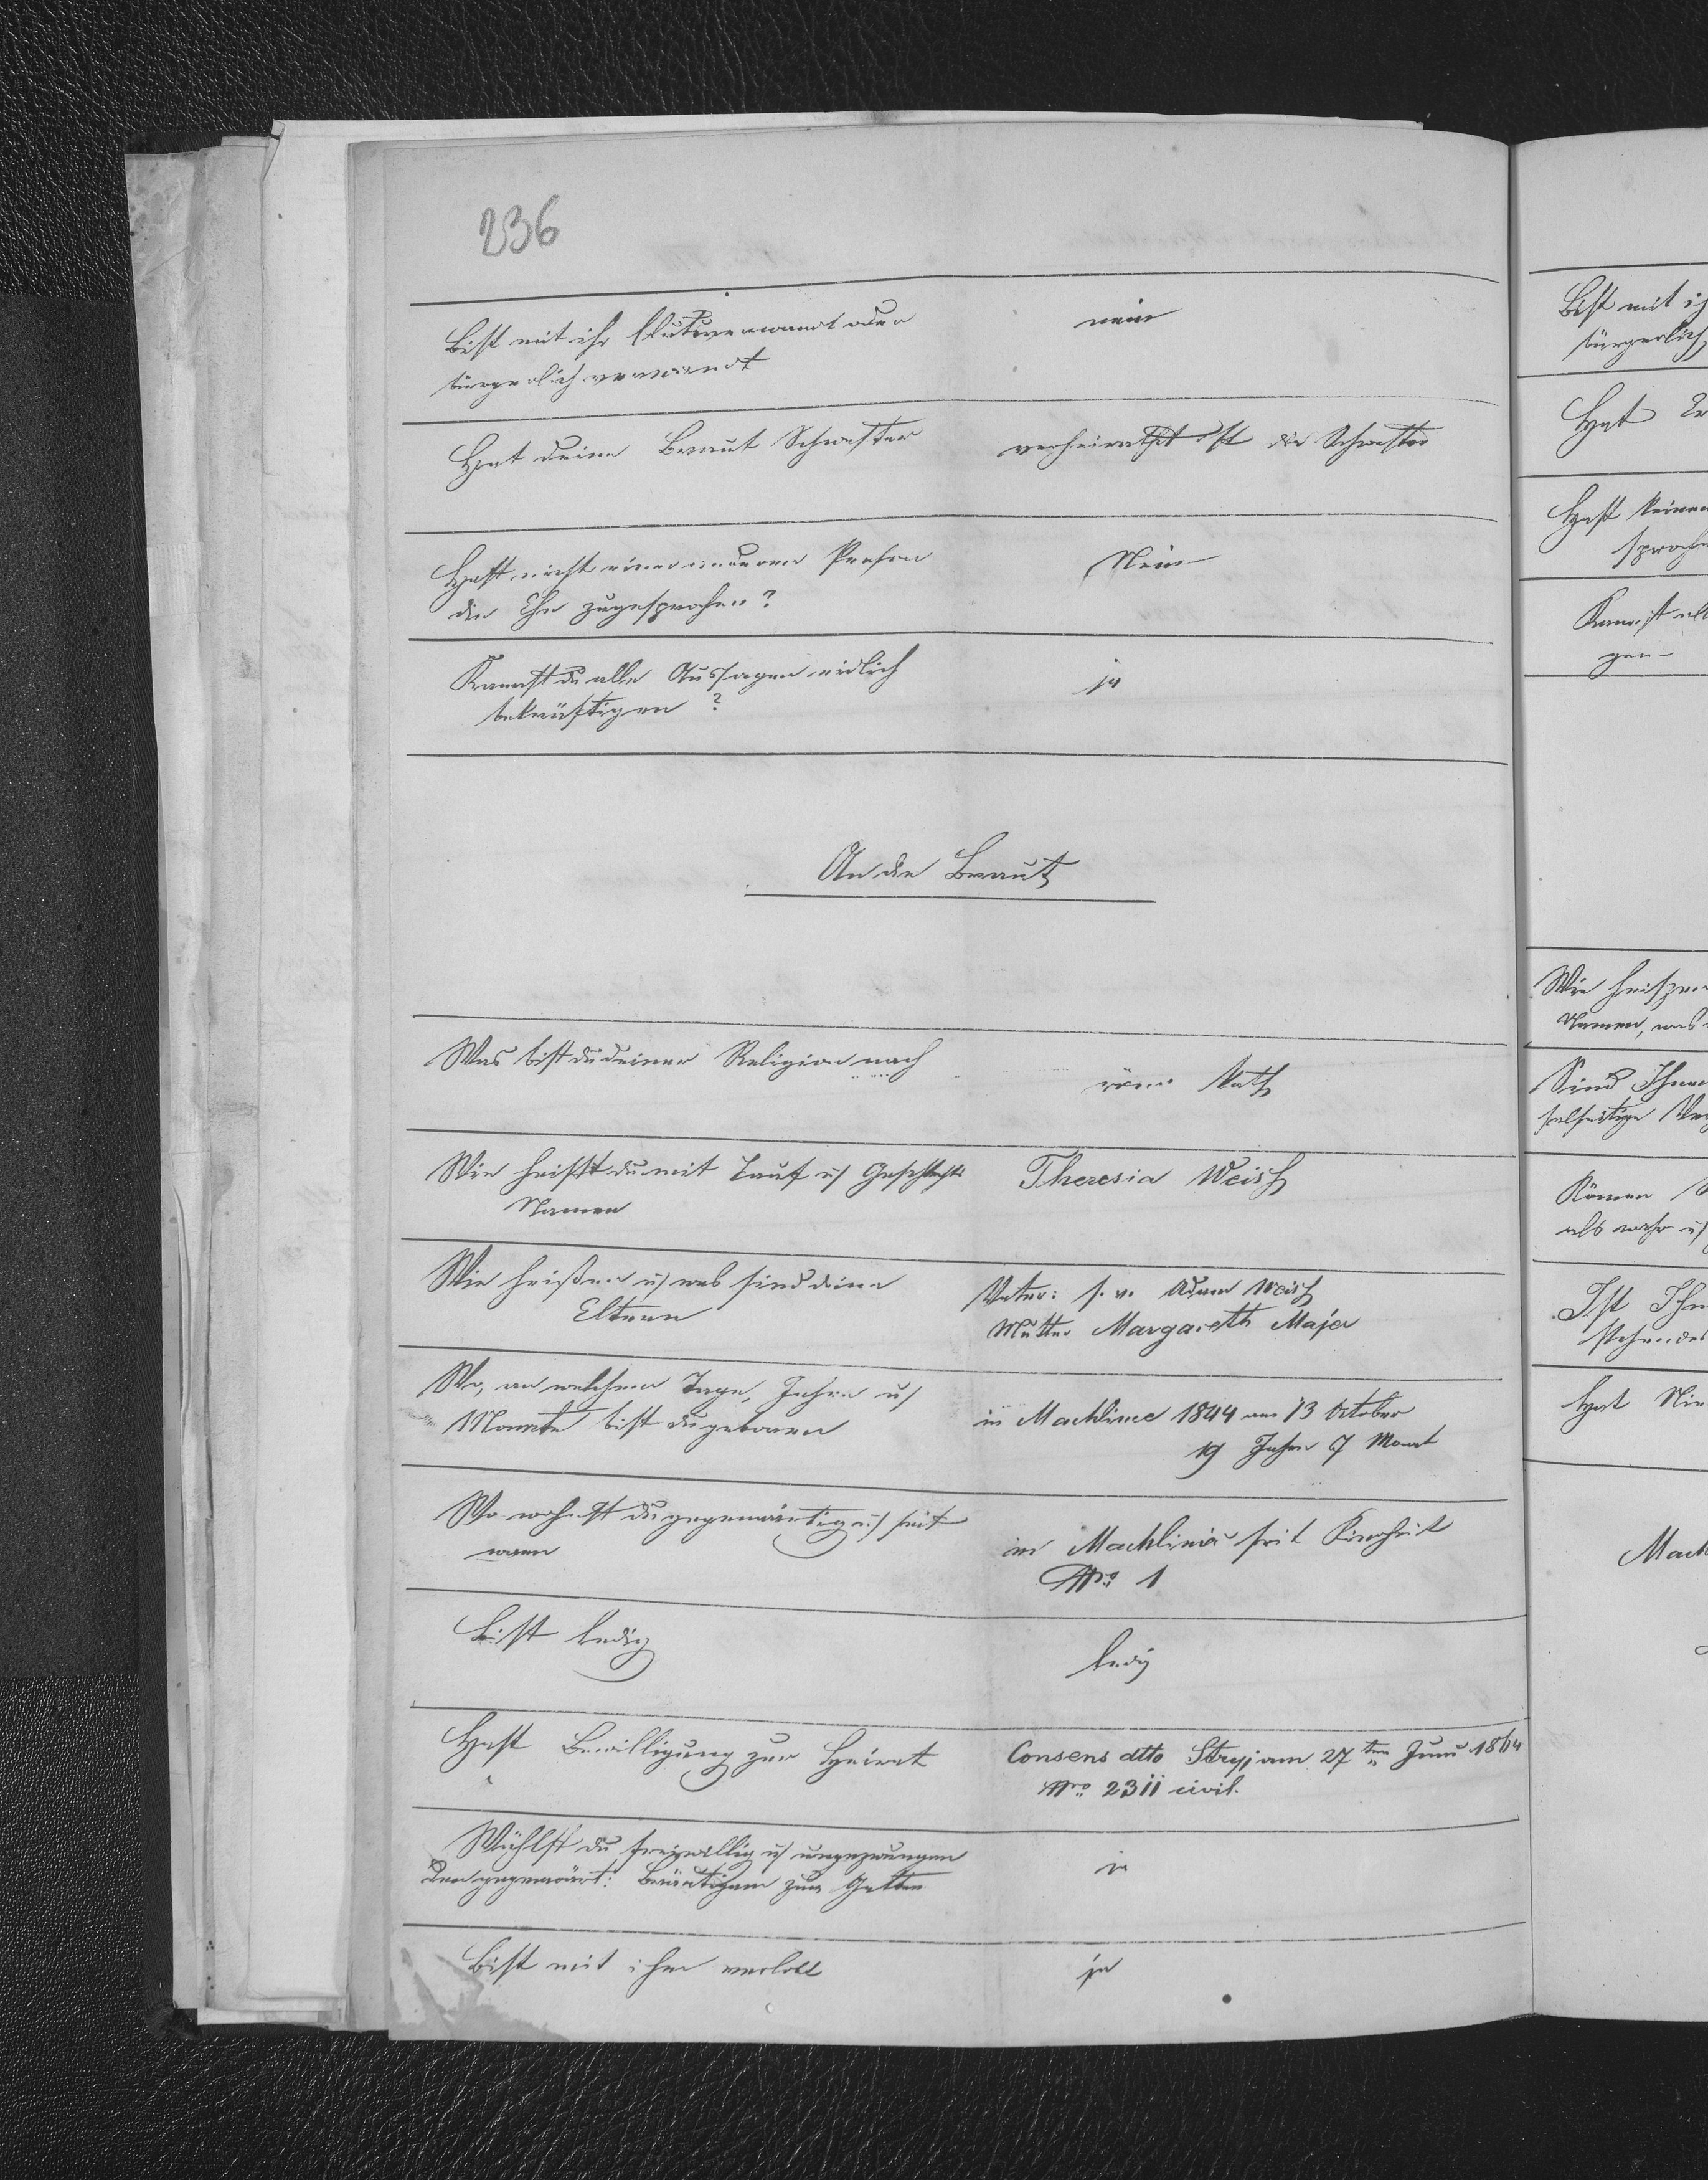 236
Bist mit ihr blutsverwandt oder
bürgerlich verwandt
nein
Hat deine Braut Schwester
verheirathet ist die Schwester
Hast nicht einer anderen Person
die Ehe zugesprochen?
Nein
Kannst du alle Aussagen eidlich
bekräftigen?
ja
An die Braut
Was bist du deiner Religion nach
röm. kath
Wie heißt du mit Tauf u Geschlechts
Namen
Theresia Weisz
Wie heißen u was sind deine
Eltern
Vater: Adam Weisz
Mutter Margareth Majer
Wo, an welchem Tage, Jahre u
Monate bist du geboren
in Machliniec 1844 am 13 October
19 Jahre 7 Monat
Wo wohnst du gegenwärtig u seit
wann
in Machliniec seit Kindheit
Nro 1
Bist ledig
ledig
Hast Bewilligung zur Heirat
Consens dtto Stryj am 27ten Juni 1864
Nro 2311 civil.
Wählst du freiwillig u ungezwungen
den gegenwärt: Bräutigam zum Gatten
ja
Bist mit ihm verlobt
ja
Bist mit ih
bürgerlich
Hat
Hast keiner
sproche
Kannst all
gen-
Wie heißen
Namen, was
Sind Ihne
Können
als wahr u
Ist Ihn
Hat Nie
Mach